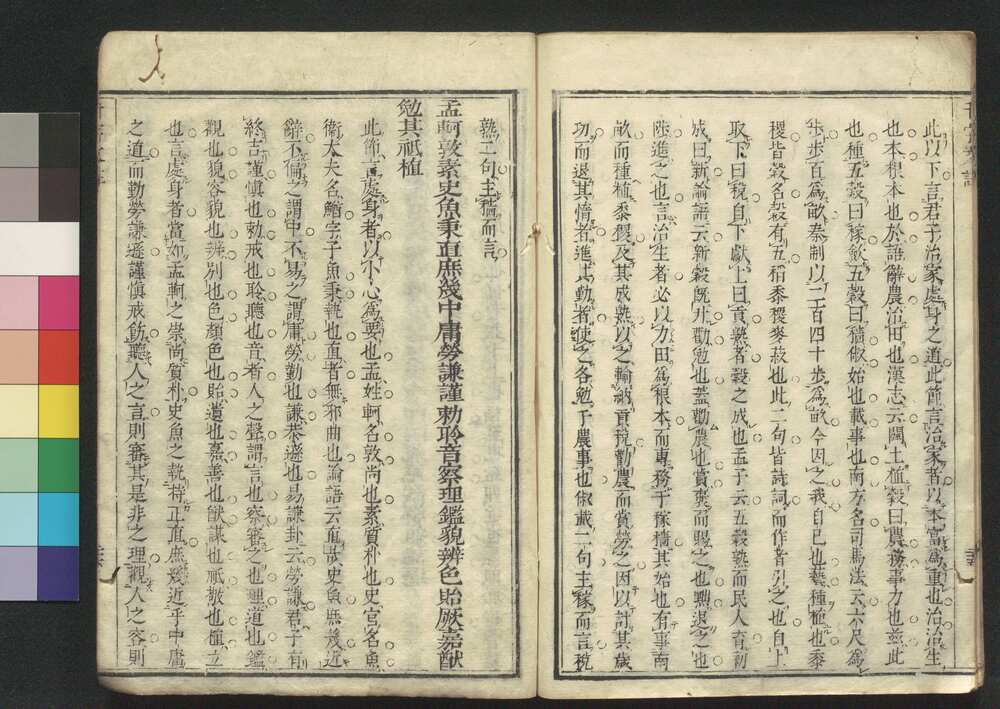 此以下言君子治家處身之道此節言治家者以本富爲重也治治生
也本根本也於語辭農治田也漢志云闢土植穀曰農務事力也茲此
也種五穀曰稼斂五穀曰穡俶始也載事也南方名司馬法云六尺爲
步步百爲畝秦制以二百四十步爲畝今因之我自己也藝種植也黍
稷皆穀名穀有五稻黍稷麥菽也此二句皆詩詞而作者引之也自上
取下曰稅自下獻上曰貢熟者穀之成也孟子云五穀熟而民人育初
成曰新論語云新穀既升勸勉也蓋勸農也賞賚而賜之也黜退之也
陟進之也言治生者必以力田爲根本而專務于稼穡其始也有事南
畝而種植黍稷及其成熟以之輸納貢稅勸農而賞勞之因以計其歲
功而退其惰者進其勤者使之各勉于農事也俶載二句主稼而言稅
熟二句主穡而言
孟軻敦素史魚秉直庶幾中庸勞謙謹勅聆音察理鑑貌辨色貽厥嘉猷
勉其祇植
此節言處身者以小心爲要也孟姓軻名敦尚也素質朴也史官名魚
衞大夫名鰌字子魚秉執也直者無邪曲也論語云直哉史魚庶幾近
辭不偏之謂中不易之謂庸勞勤也謙恭遜也易謙卦云勞謙君子有
終吉謹愼也勅戒也聆聽也音者人之聲謂言也察審之也理道也鑑
觀也貌容貌也辨別也色顏色也貽遺也嘉善也猷謀也祇敬也植立
也言處身者當如孟軻之崇尚質朴史魚之執持正直庶幾近乎中庸
之道而勤勞謙遜謹愼戒飭聽人之言則審其是非之理觀人之容則